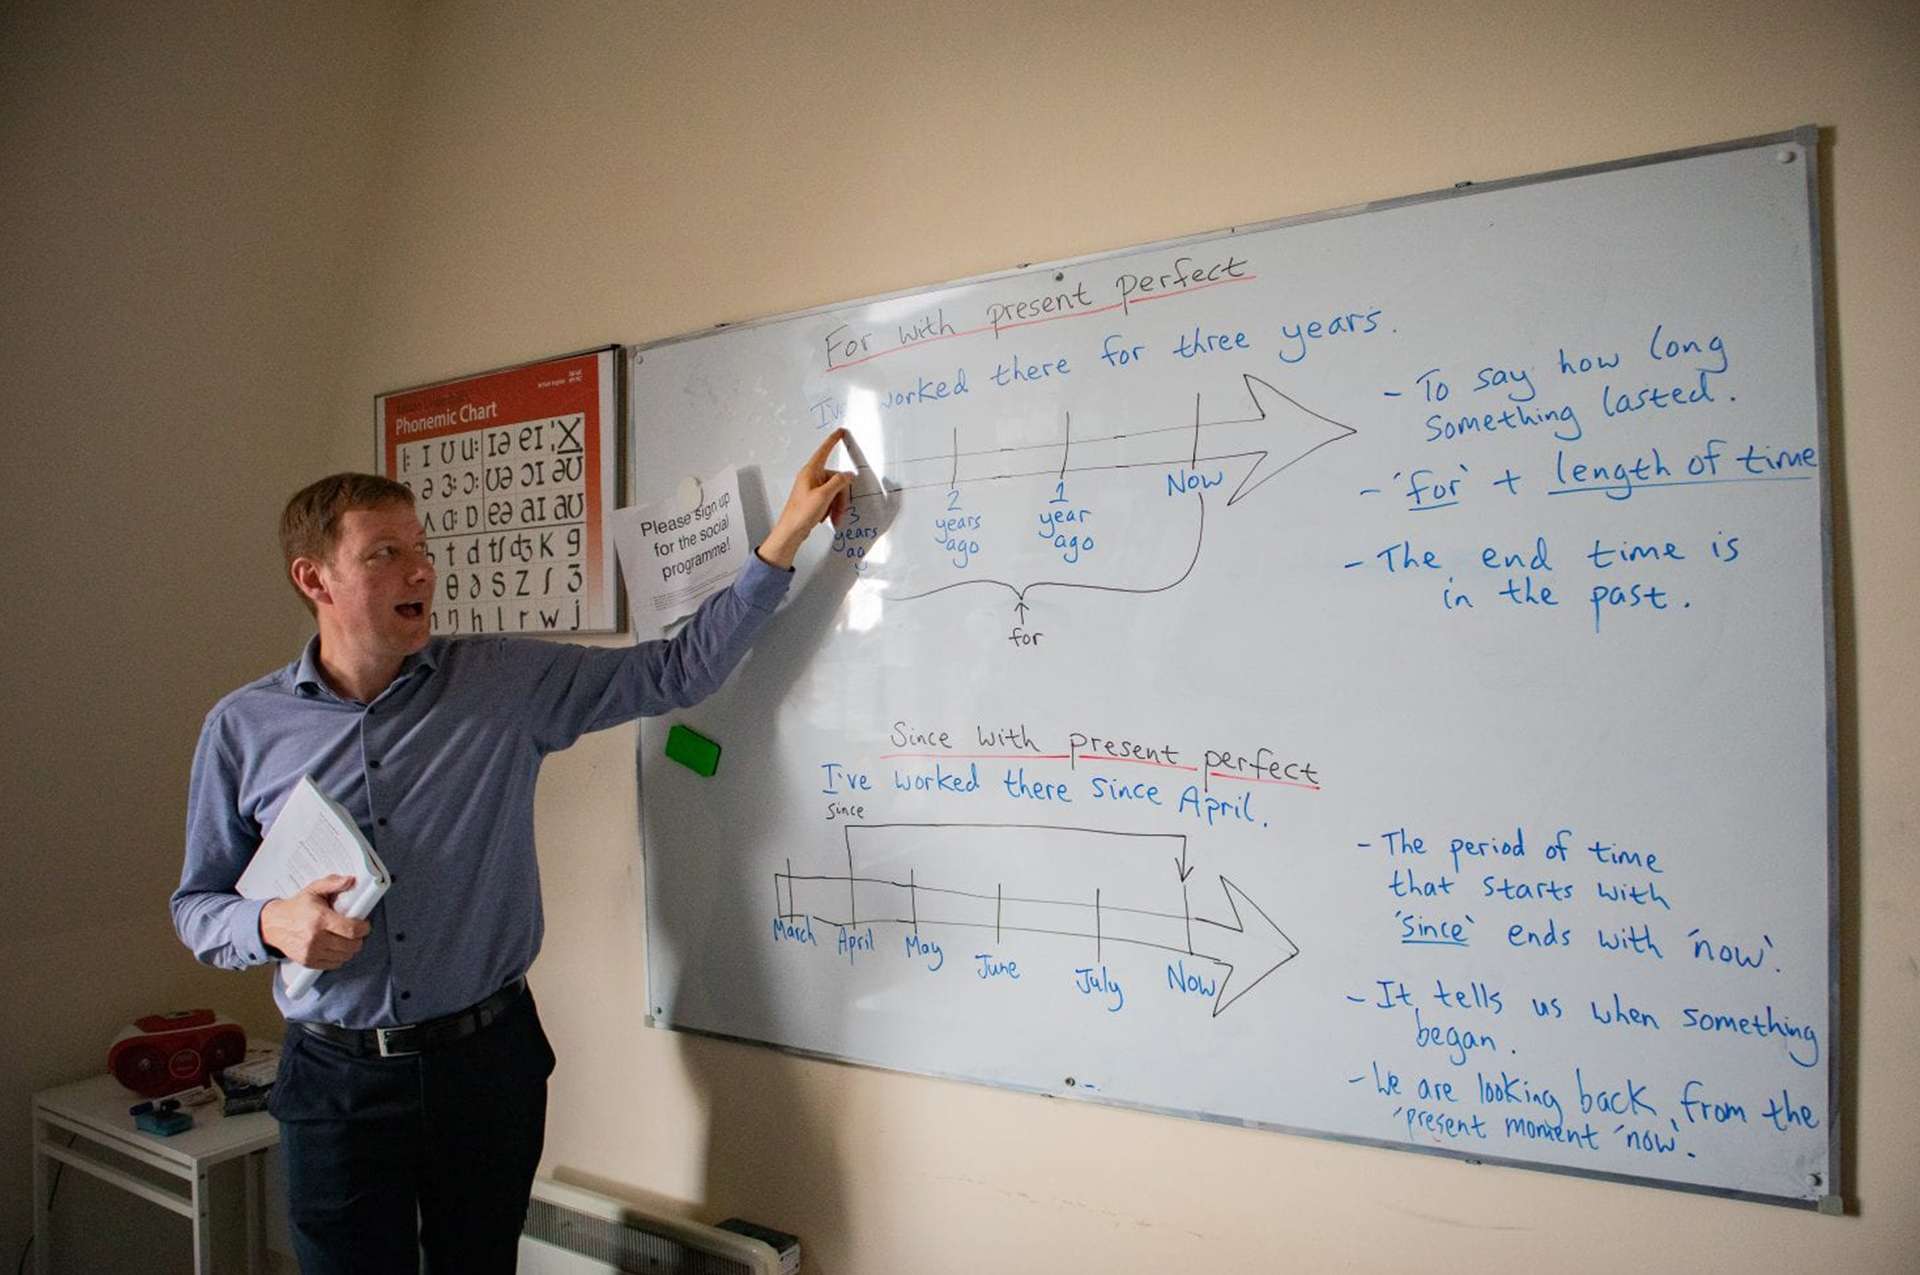 For with present perfect
I've worked there for three years.
3 years ago
2 years ago
1 year ago
Now
for
- To say how long
something lasted.
- 'for' + length of time
- The end time is
in the past.
Since with present perfect
I've worked there since April.
since
March
April
May
June
July
Now
- The period of time
that starts with
'since' ends with 'now'.
- It tells us when something
began.
- We are looking back from the
'present moment 'now'.
Phonemic Chart
ɪ ʊ u: ɪə eɪ
ə ɜ: ɔ: ʊə ɔɪ əʊ
ʌ ɑ: ɒ eə aɪ aʊ
t d tʃ dʒ k g
θ ð s z ʃ ʒ
ŋ h l r w j
Please sign up
for the social
programme!